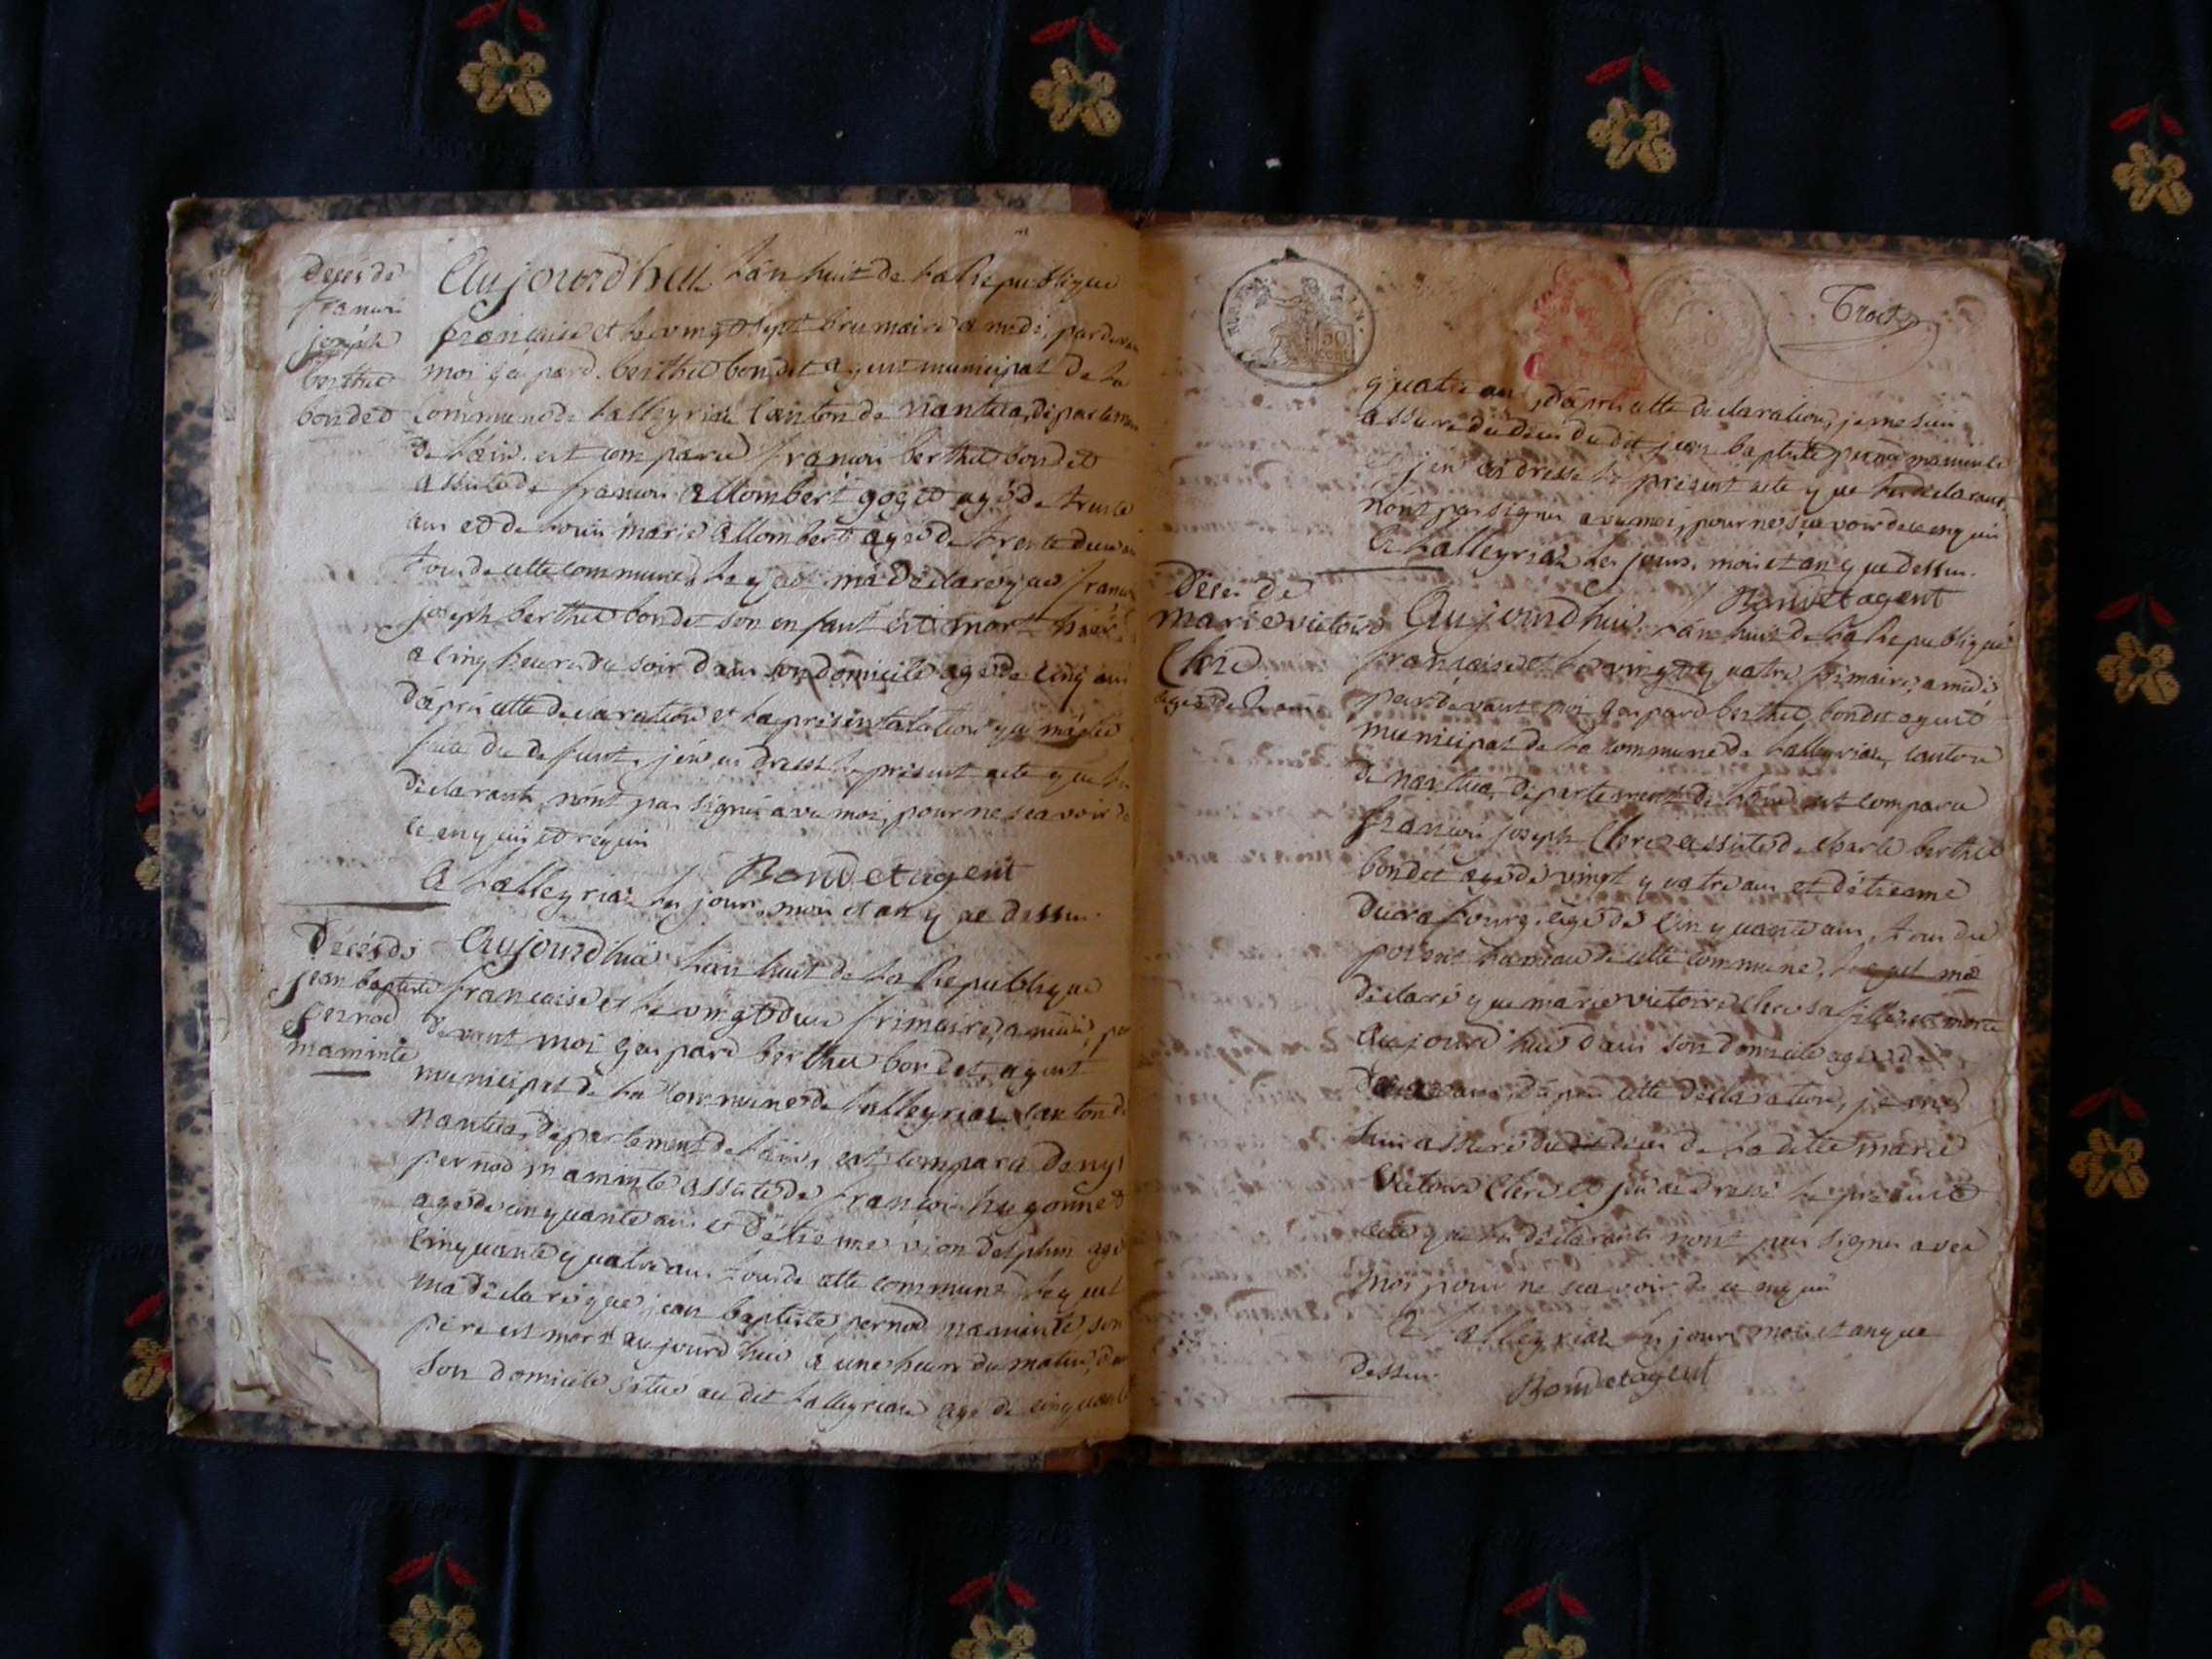 Décés de
francois
joseph
berthet
bondet
Aujourdhui L'an huit de La Republique
francaise et Le vingt sept brumaire a midi, pardevan
moi gaspard berthet bondet agent municipal de La
Commune de Lalleyriat Canton de nantua, departeme
de L'ain. est comparu francois berthet bondet
assisté de francois allombert goget agé de trente
ans et de Louis marie allombert agé de trente deux an
tous de cette commune, Lequel m'a déclaré que franc
joseph berthet bondet son enfant est mort hier
a cinq heure du soir dans son domicile agé de cinq ans
d'aprés cette declaration et La présentatation qui m'a été
faite du defunt, j'en ai dressé Le présent acte que Les
déclarants n'ont pas signé avec moi, pour ne scavoir de
ce enquis et requis
A Lalleyriat Les jour, mois et an que dessus.
Bondet agent
Décés de
jean baptiste
pernod
maminte
Aujourdhui L'an huit de La Republique
francaise et Le vingt deux frimaire, a midi, par
devant moi gaspard berthet bondet, agent
municipal de La Commune de Lalleyriat canton de
nantua, departement de L'ain, est comparu denys
pernod maminte assisté de francois hugonnet
agé de cinquante ans et d'étienne vion delphin agé
cinquante quatre ans tous de cette commune, Lequel
m'a déclaré que jean baptiste pernod maminte son
pere est mort aujourd'hui a une heure du matin, dans
son domicile situé au dit Lalleyriat agé de cinquante
50
cent
quatre ans, d'aprés cette declaration, je me suis
assuré du déces du dit jean baptiste pernod maminte
j'en ai dressé Le présent acte que Les déclarants
n'ont pas signé avec moi, pour ne scavoir de ce enquis
A Lalleyriat Les jours, mois et an que dessus.
Bondet agent
Déces de
marie victoire
Clerc
agée de 2 ans
Aujourdhui L'an huit de La Republique
francaise et Le vingt quatre frimaire, a midi
pardevant moi gaspard berthet bondet agent
municipal de La commune de Lalleyriat, canton
de nantua, departement de L'ain est comparu
francois joseph Clerc assisté de charle berthet
bondet agé de vingt quatre ans et d'étienne
agé de cinquante ans, tous du
hameau de cette commune, Lequel m'a
déclaré que marie victoire Clerc sa fille est morte
aujourd'hui dans son domicile agée de
deux ans, d'aprés cette déclaration, je me
suis assuré du dit déces de La dite marie
victoire Clerc et j'en ai dressé Le présent
acte que Les déclarants n'ont pas signé avec
moi pour ne scavoir de ce enquis
A Lalleyriat Les jours mois et an que
dessus.
Bondet agent